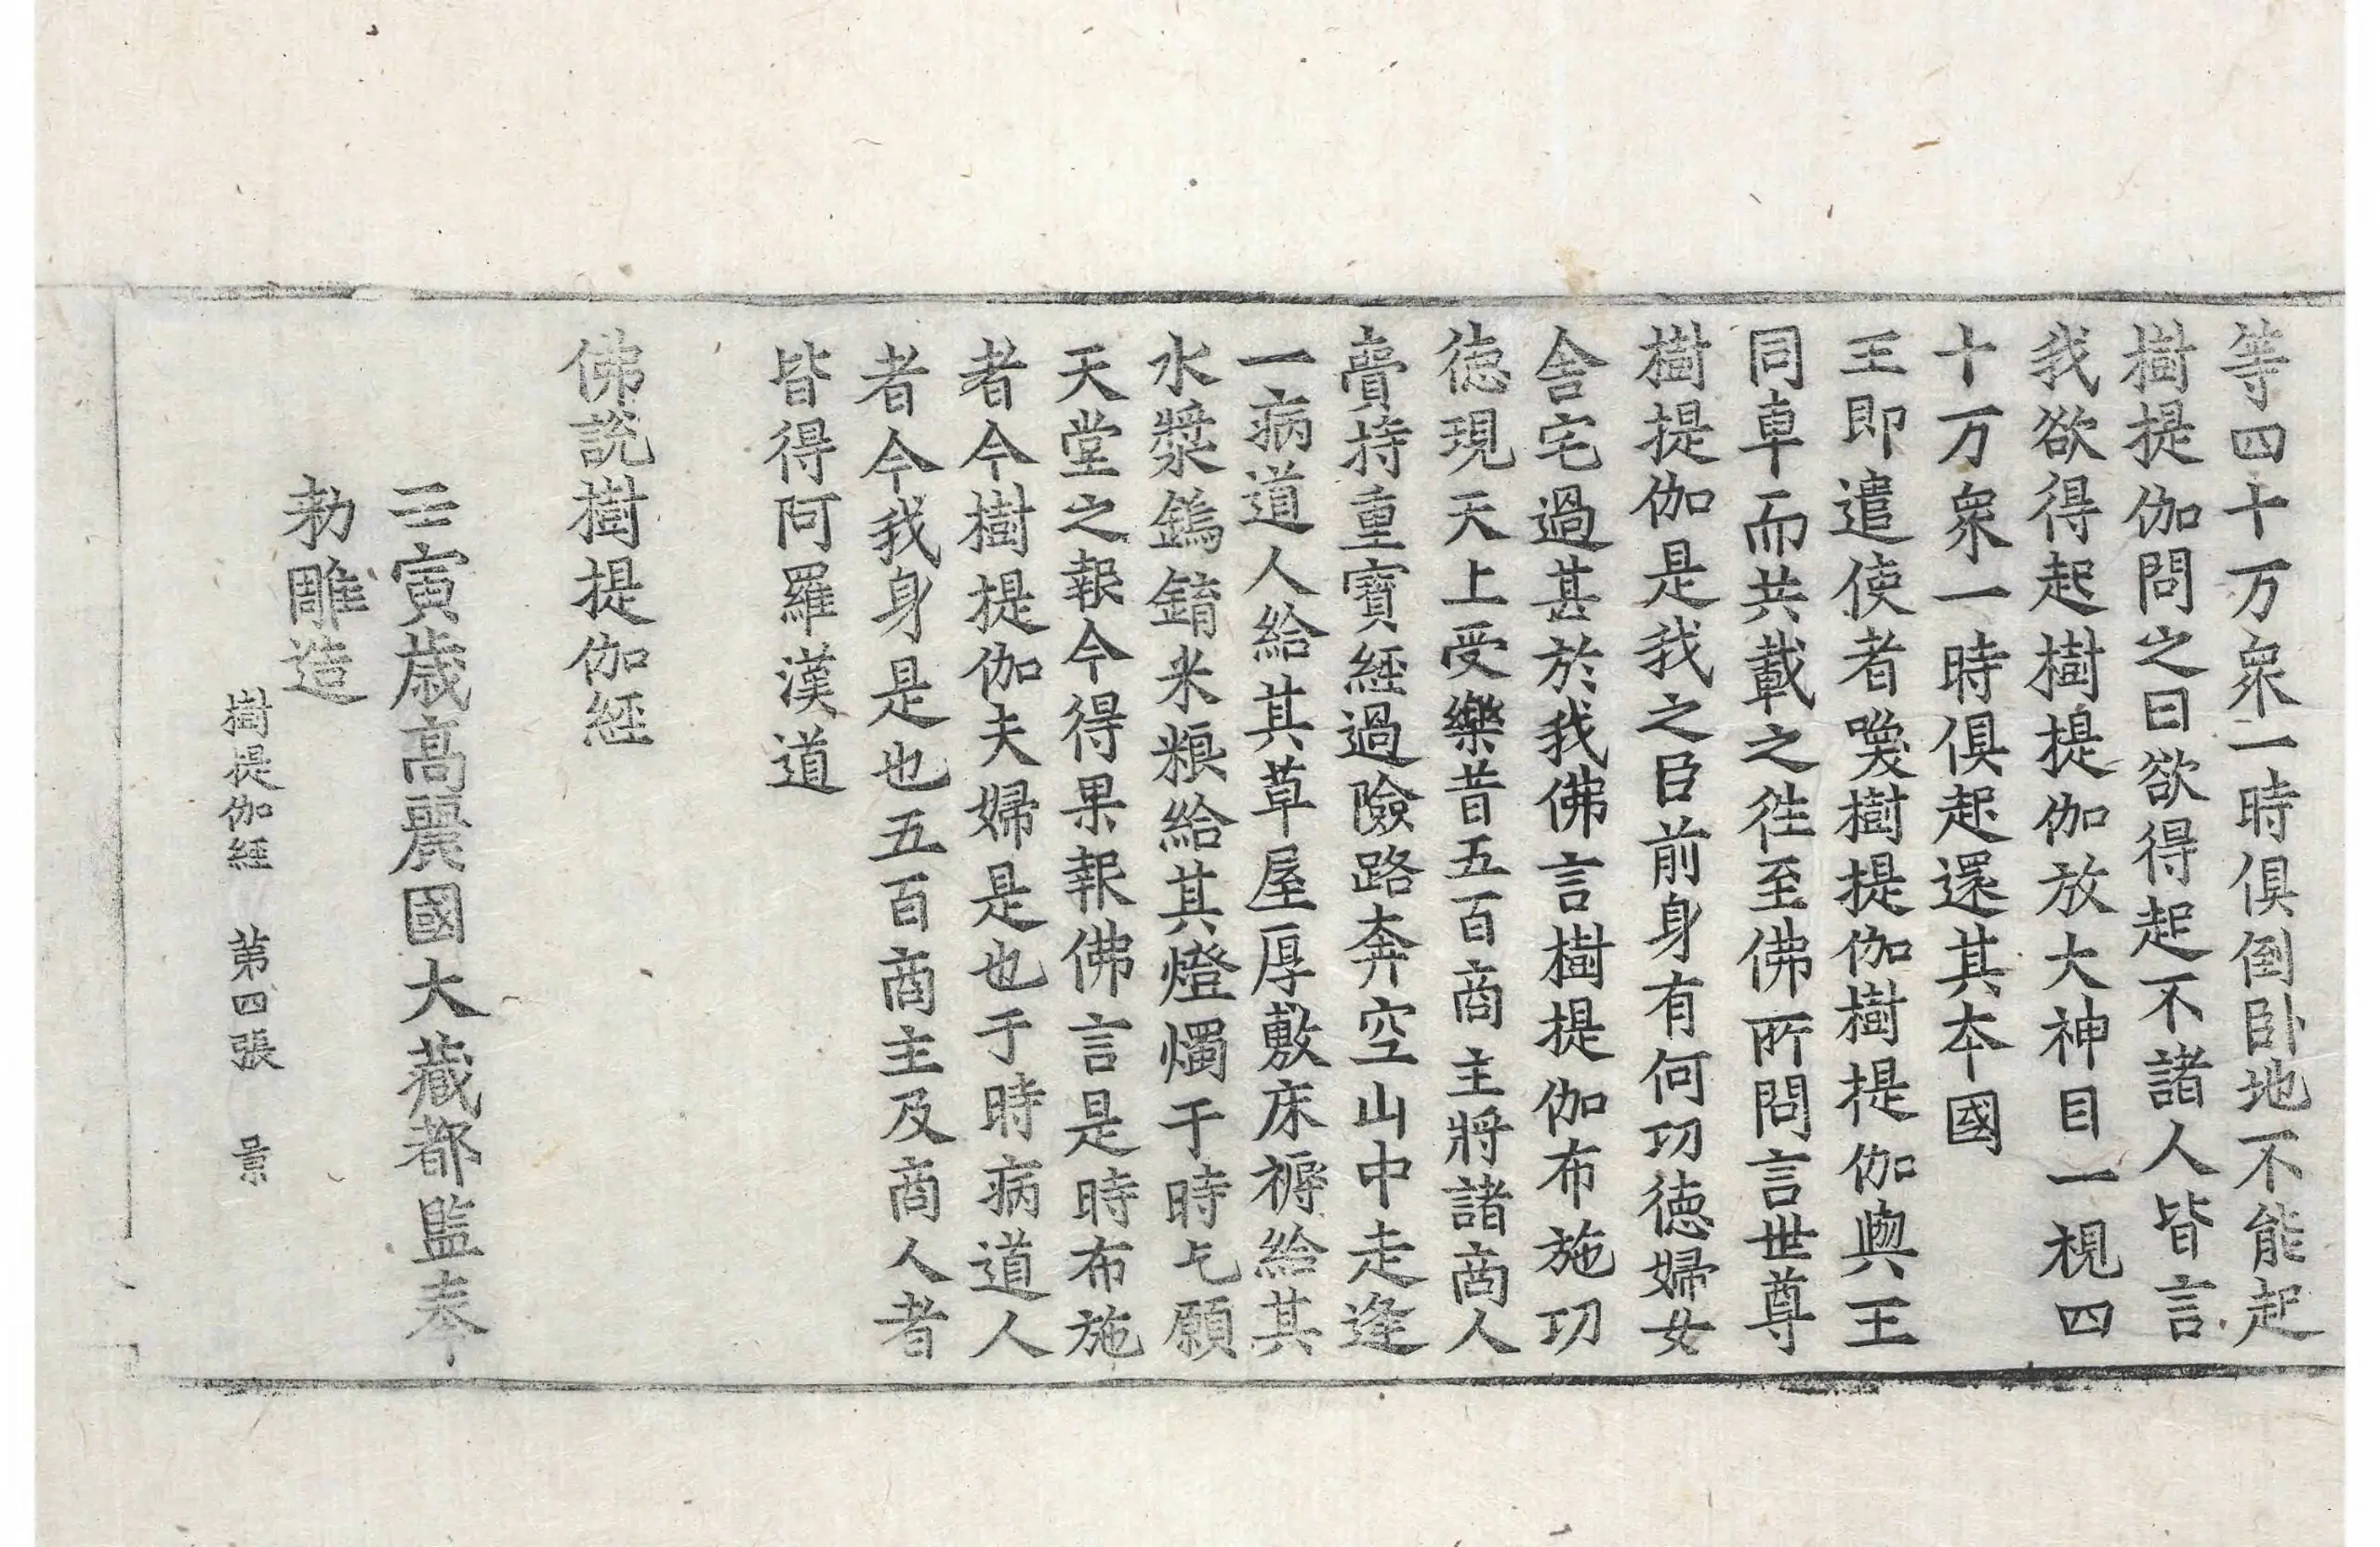 等四十万衆一時俱倒卧地不能起
樹提伽問之曰欲得起不諸人皆言
我欲得起樹提伽放大神目一視四
十万衆一時俱起還其本國
王即遣使者喚樹提伽樹提伽與王
同車而共載之往至佛所問言世尊
樹提伽是我之臣前身有何功德婦女
舍宅過甚於我佛言樹提伽布施功
德現天上受樂昔五百商主將諸商人
賷持重寶經過險路奔空山中走逢
一病道人給其草屋厚敷床褥給其
水漿鎢錥米粮給其燈燭于時乞願
天堂之報今得果報佛言是時布施
者今樹提伽夫婦是也于時病道人
者今我身是也五百商主及商人者
皆得阿羅漢道
佛說樹提伽經
壬寅歲高麗國大藏都監奉
勅雕造
樹提伽經 第四張 景